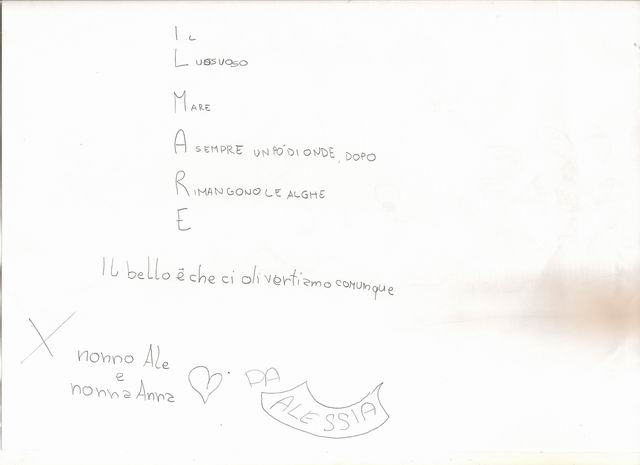 IL
LUSSUOSO
MARE
A SEMPRE UN PÒ DI ONDE, DOPO
RIMANGONO LE ALGHE
E
IL bello è che ci divertiamo comunque
X nonno Ale
e
nonna Anna
DA
ALESSIA